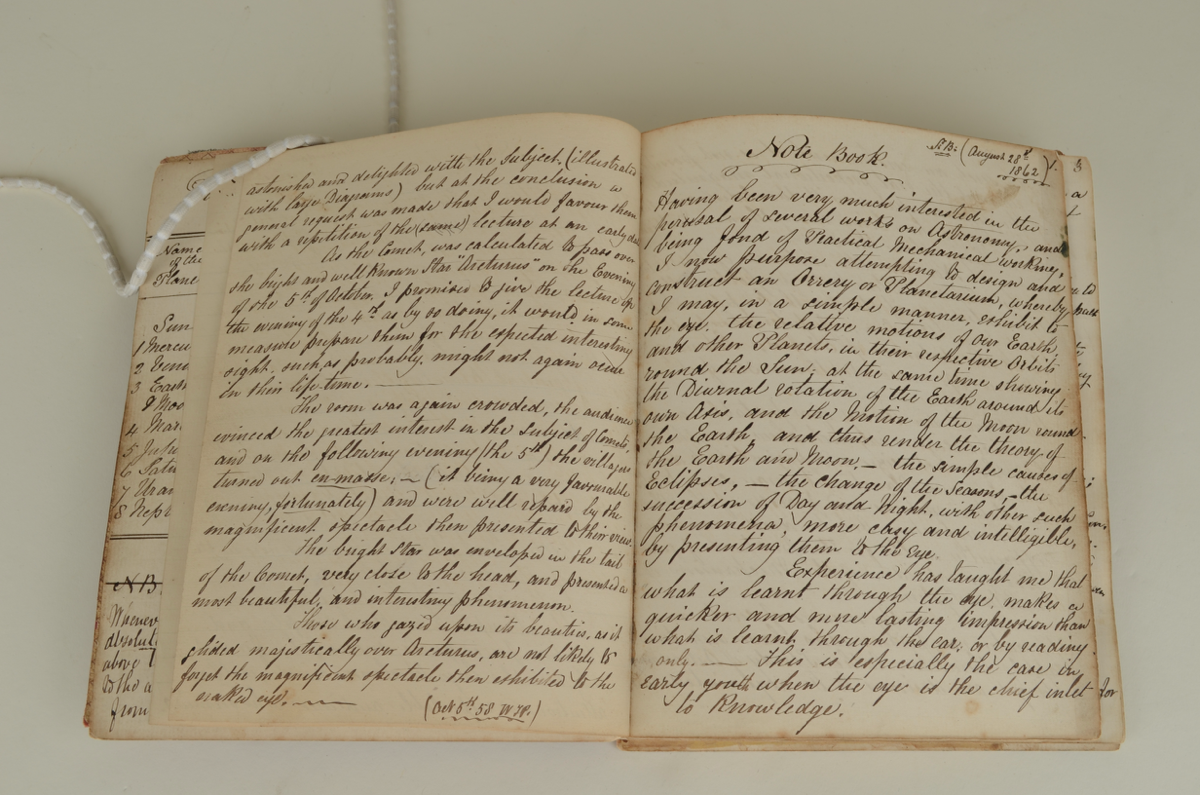 Name
of the
Plane
Sun
1 Mercu
2 Venu
3 Earth
4 Mars
5 Jupi
6 Satu
7 Uran
8 Nept
N B.
Whenev
absolut
above
to the a
from
astonished and delighted with the subject, (illustrated
with large Diagrams) but at the conclusion a
general request was made that I would favour them
with a repetition of the (same) lecture at an early da
As the Comet, was calculated to pass over
the bright and well known Star "Arcturus" on the Evening
of the 5th of October, I promised to give the lecture
the evening of the 4th as by so doing, it would in some
measure prepare them for the expected interesting
sight, such as probably, might not again occur
in their life time.
The room was again crowded, the audience
evinced the greatest interest in the subject of Comets,
and on the following evening (the 5th) the villagers
turned out en-masse, — (it being a very favourable
evening, fortunately) and were well repaid by the
magnificent spectacle then presented to their view.
The bright Star was enveloped in the tail
of the Comet, very close to the head, and presented a
most beautiful, and interesting phenomenon.
Those who gazed upon its beauties, as it
glided majestically over Arcturus, are not likely to
forget the magnificent spectacle then exhibited to the
naked eye. —
(Oct 5th 58
Note Book.
N.B: (August 28th
1862) 1.
Having been very much interested in the
perusal of several works on Astronomy, and
being fond of Practical Mechanical working,
I now purpose attempting to design and
construct an Orrery or Planetarium, whereby
I may, in a simple manner, exhibit to
the eye, the relative motions of our Earth,
and other Planets, in their respective Orbits
round the Sun; at the same time shewing
the Diurnal rotation of the Earth around its
own Axis, and the Motion of the Moon round
the Earth, and thus render the theory of
the Earth and Moon, — the simple causes of
Eclipses, — the change of the Seasons, the
succession of Day and Night, with other such
phenomena, more easy and intelligible,
by presenting them to the eye.
Experience has taught me that
what is learnt through the eye, makes a
quicker and more lasting impression than
what is learnt through the ear, or by reading
only. — This is especially the case in
early youth when the eye is the chief inlet
to Knowledge.
3
a
for